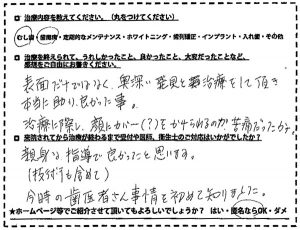 □ 治療内容を教えてください。（丸をつけてください）
むし歯・歯周病・定期的なメンテナンス・ホワイトニング・歯列矯正・インプラント・入れ歯・その他
□ 治療を終えられて、うれしかったこと、良かったこと、大変だったことなど、
感想をご自由にお書きください。
表面だけではなく、奥深い発見と治療をして頂き
本当に助り良かった事。
治療に際し、顔にカバー(?)をかけられるのが苦痛だったかな。
□ 来院されてから治療が終わるまで受付や医師、衛生士のご対応はいかがでしたか？
親身な指導で良かったと思います。
(技術も含めて)
今時の歯医者さん事情を初めて知りました。
★ホームページ等でご紹介させて頂いてもよろしいでしょうか？ はい・匿名ならOK・ダメ